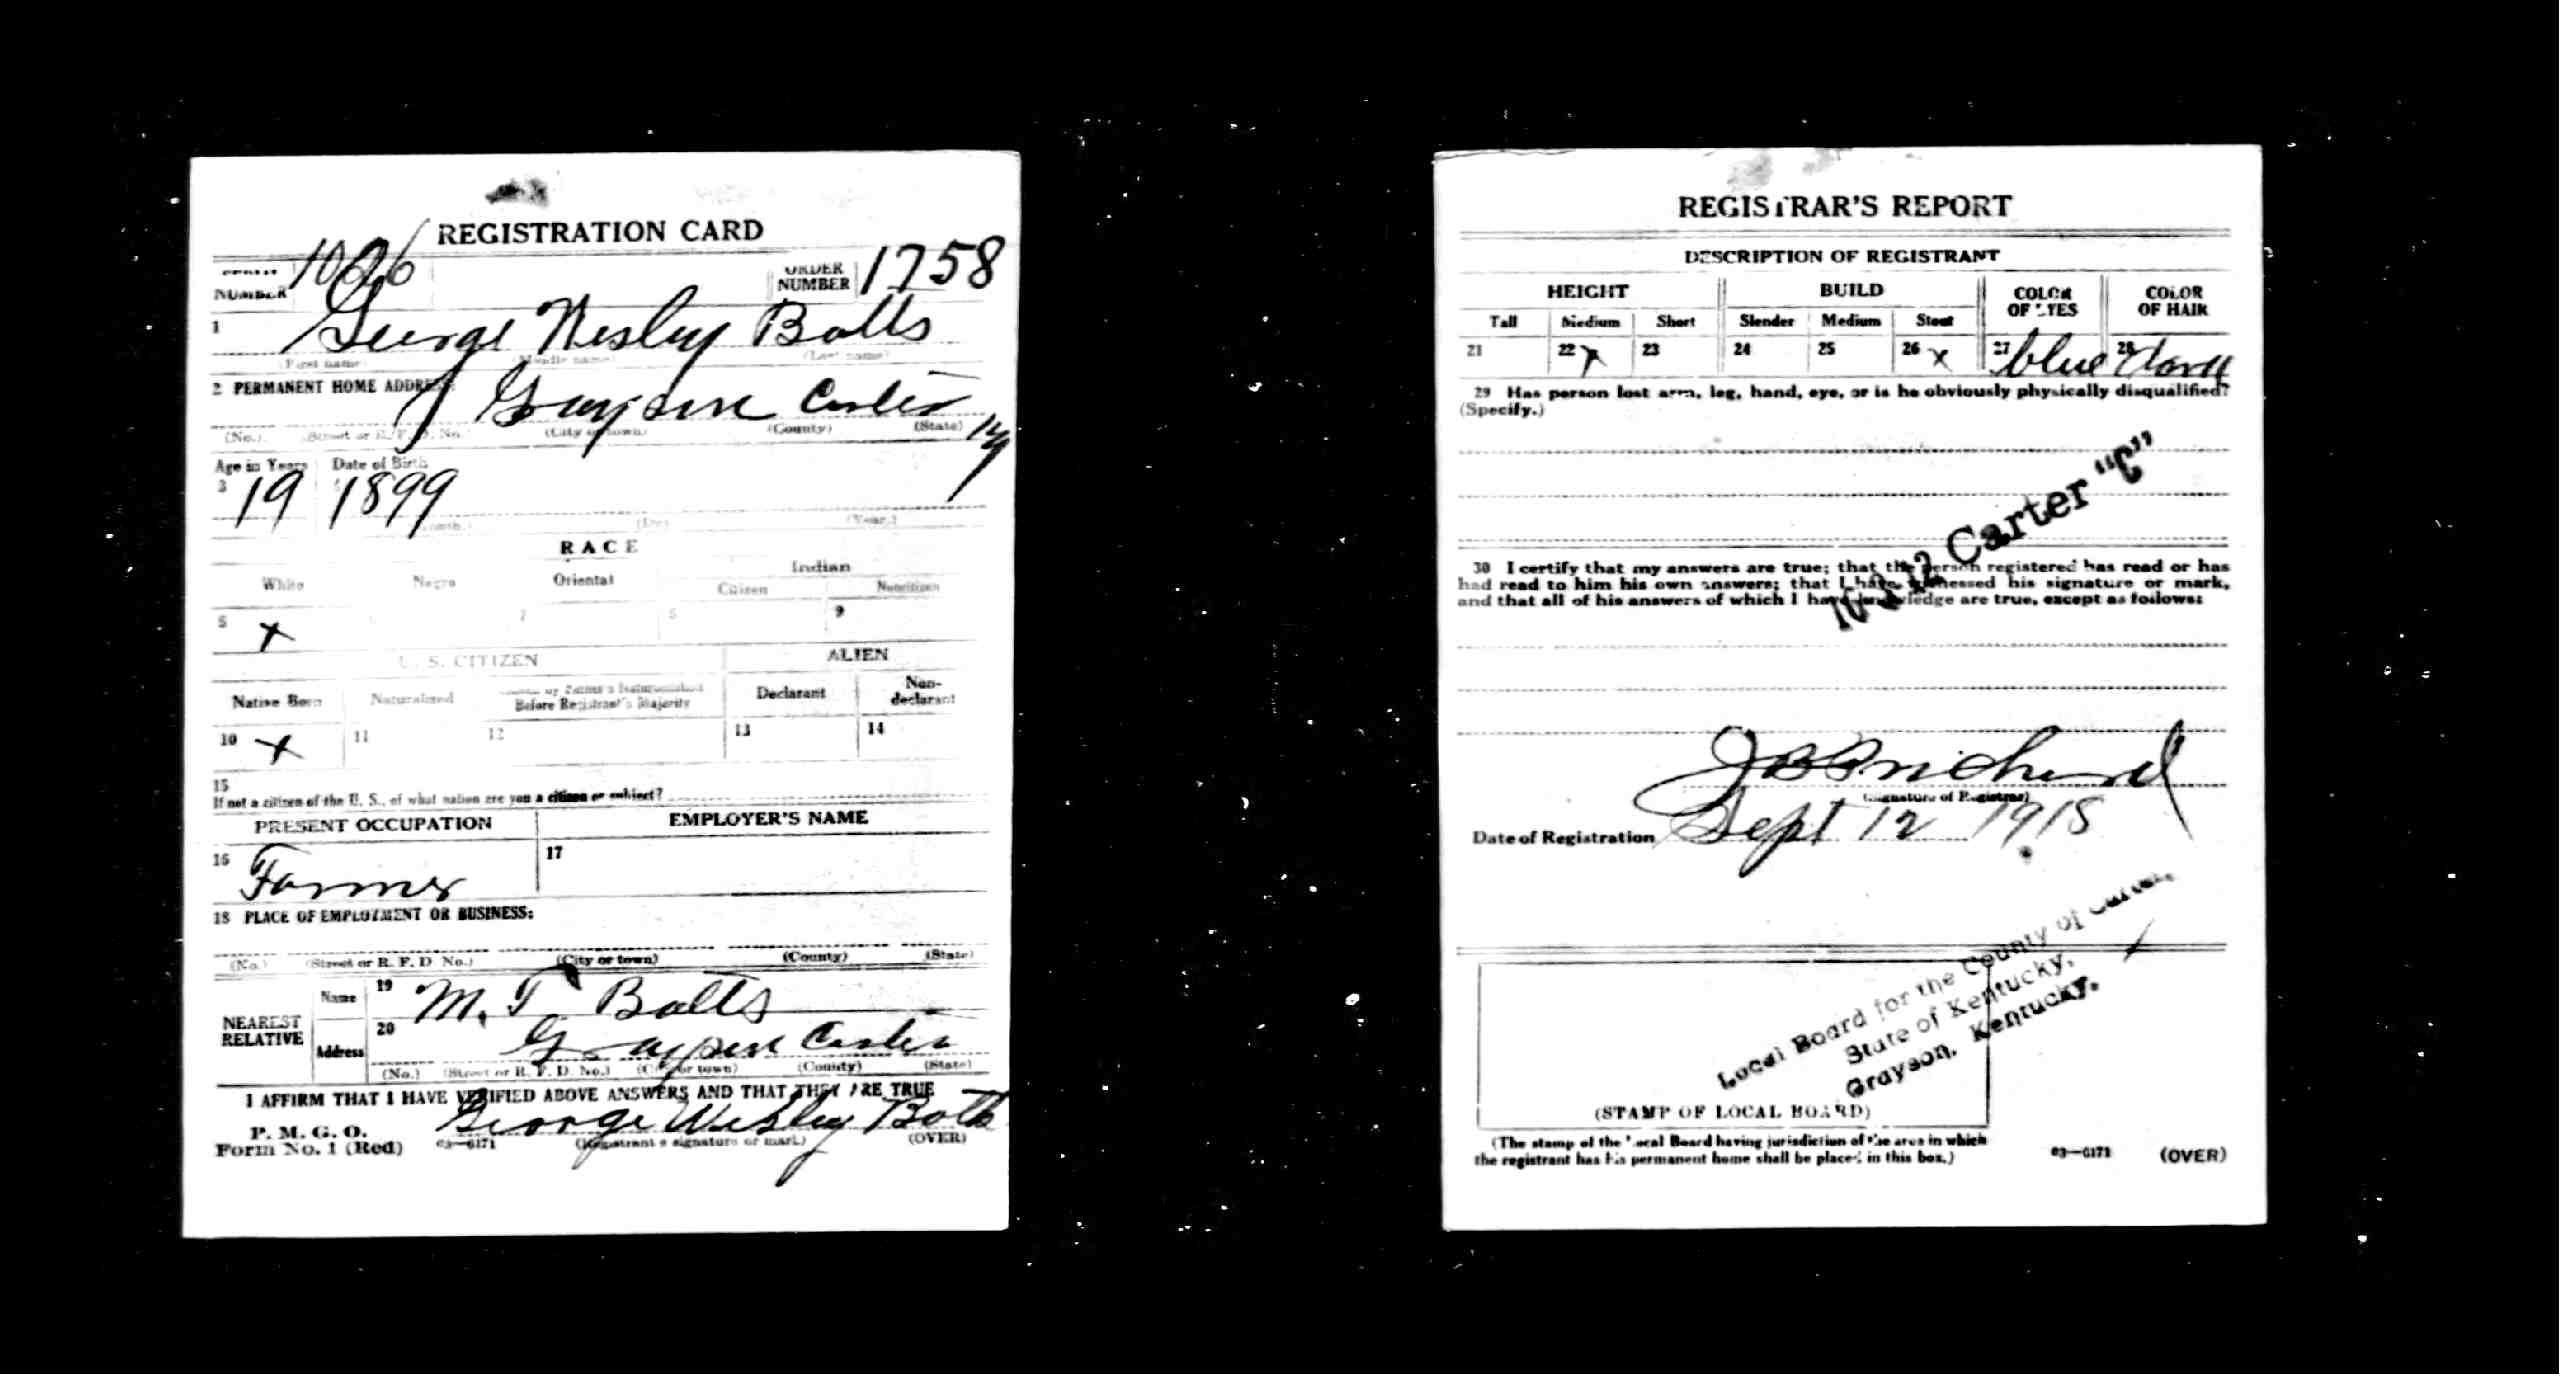 REGISTRATION CARD
NUMBER
ORDER NUMBER 1758
1 George Wesley Botts
(First name) (Middle name) (Last name)
2 PERMANENT HOME ADDRESS:
Grayson Carter Ky
(No.) (Street or R. F. D. No.) (City or town) (County) (State)
Age in Years Date of Birth
3 19 1899
(Month.) (Day) (Year.)
RACE
White Negro Oriental Indian
Citizen Noncitizen
5 x 7 8 9
U. S. CITIZEN ALIEN
Native Born Naturalized Citizen by Father's Naturalization Before Registrant's Majority Declarant Non-declarant
10 x 11 12 13 14
15
If not a citizen of the U. S., of what nation are you a citizen or subject?
PRESENT OCCUPATION EMPLOYER'S NAME
16 Farmer 17
18 PLACE OF EMPLOYMENT OR BUSINESS:
(No.) (Street or R. F. D. No.) (City or town) (County) (State)
NEAREST RELATIVE
Name 19 M. T Botts
Address 20 Grayson Carter
(No.) (Street or R. F. D. No.) (City or town) (County) (State)
I AFFIRM THAT I HAVE VERIFIED ABOVE ANSWERS AND THAT THEY ARE TRUE
P. M. G. O.
Form No. 1 (Red) 03—6171 George Wesley Botts
(Registrant's signature or mark.) (OVER)
REGISTRAR'S REPORT
DESCRIPTION OF REGISTRANT
HEIGHT BUILD COLOR OF EYES COLOR OF HAIR
Tall Medium Short Slender Medium Stout
21 22 x 23 24 25 26 x 27 blue 28 dark
29 Has person lost arm, leg, hand, eye, or is he obviously physically disqualified?
(Specify.)
Carter "C"
30 I certify that my answers are true; that the person registered has read or has
had read to him his own answers; that I have witnessed his signature or mark,
and that all of his answers of which I have knowledge are true, except as follows:
J B Prichard
(Signature of Registrar)
Date of Registration Sept 12 1918
Local Board for the County of Carter,
State of Kentucky,
Grayson, Kentucky.
(STAMP OF LOCAL BOARD)
(The stamp of the Local Board having jurisdiction of the area in which
the registrant has his permanent home shall be placed in this box.)
03—6171 (OVER)